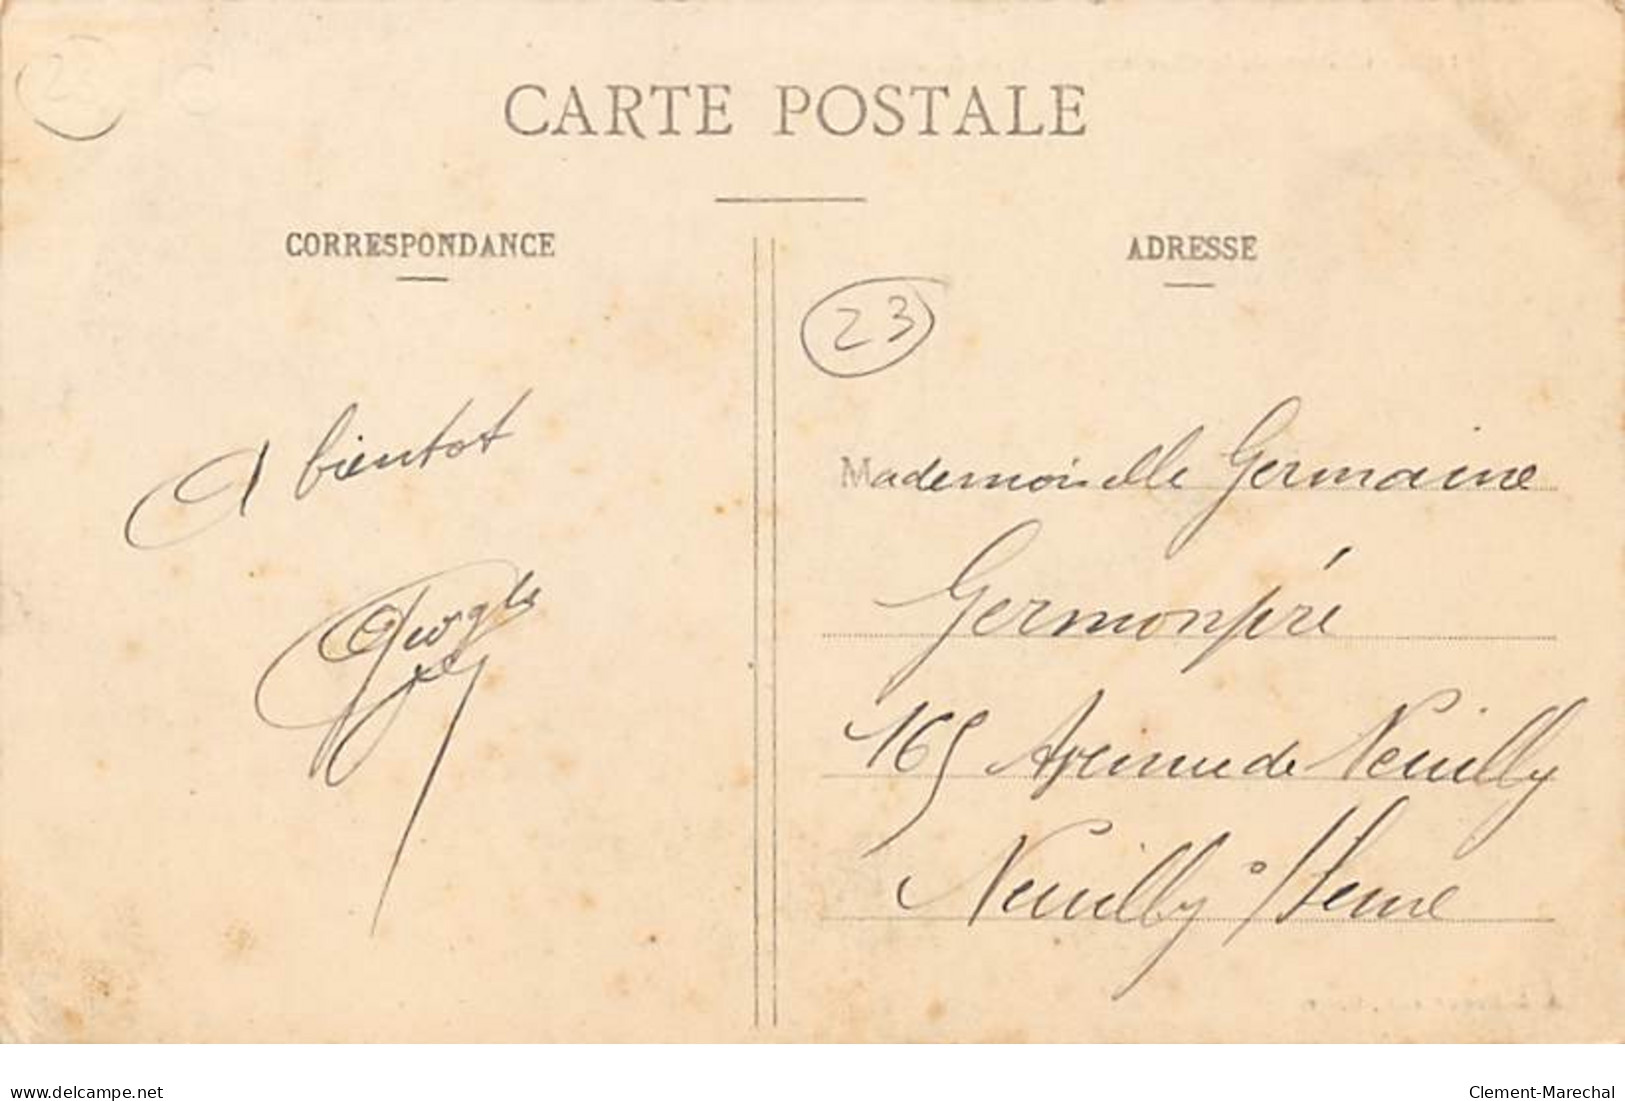 23
CARTE POSTALE
CORRESPONDANCE
A bientot
Georges
ADRESSE
23
Mademoiselle Germaine
Germonpré
165 Avenue de Neuilly
Neuilly s/Seine
delcampe.net
Clement-Marechal